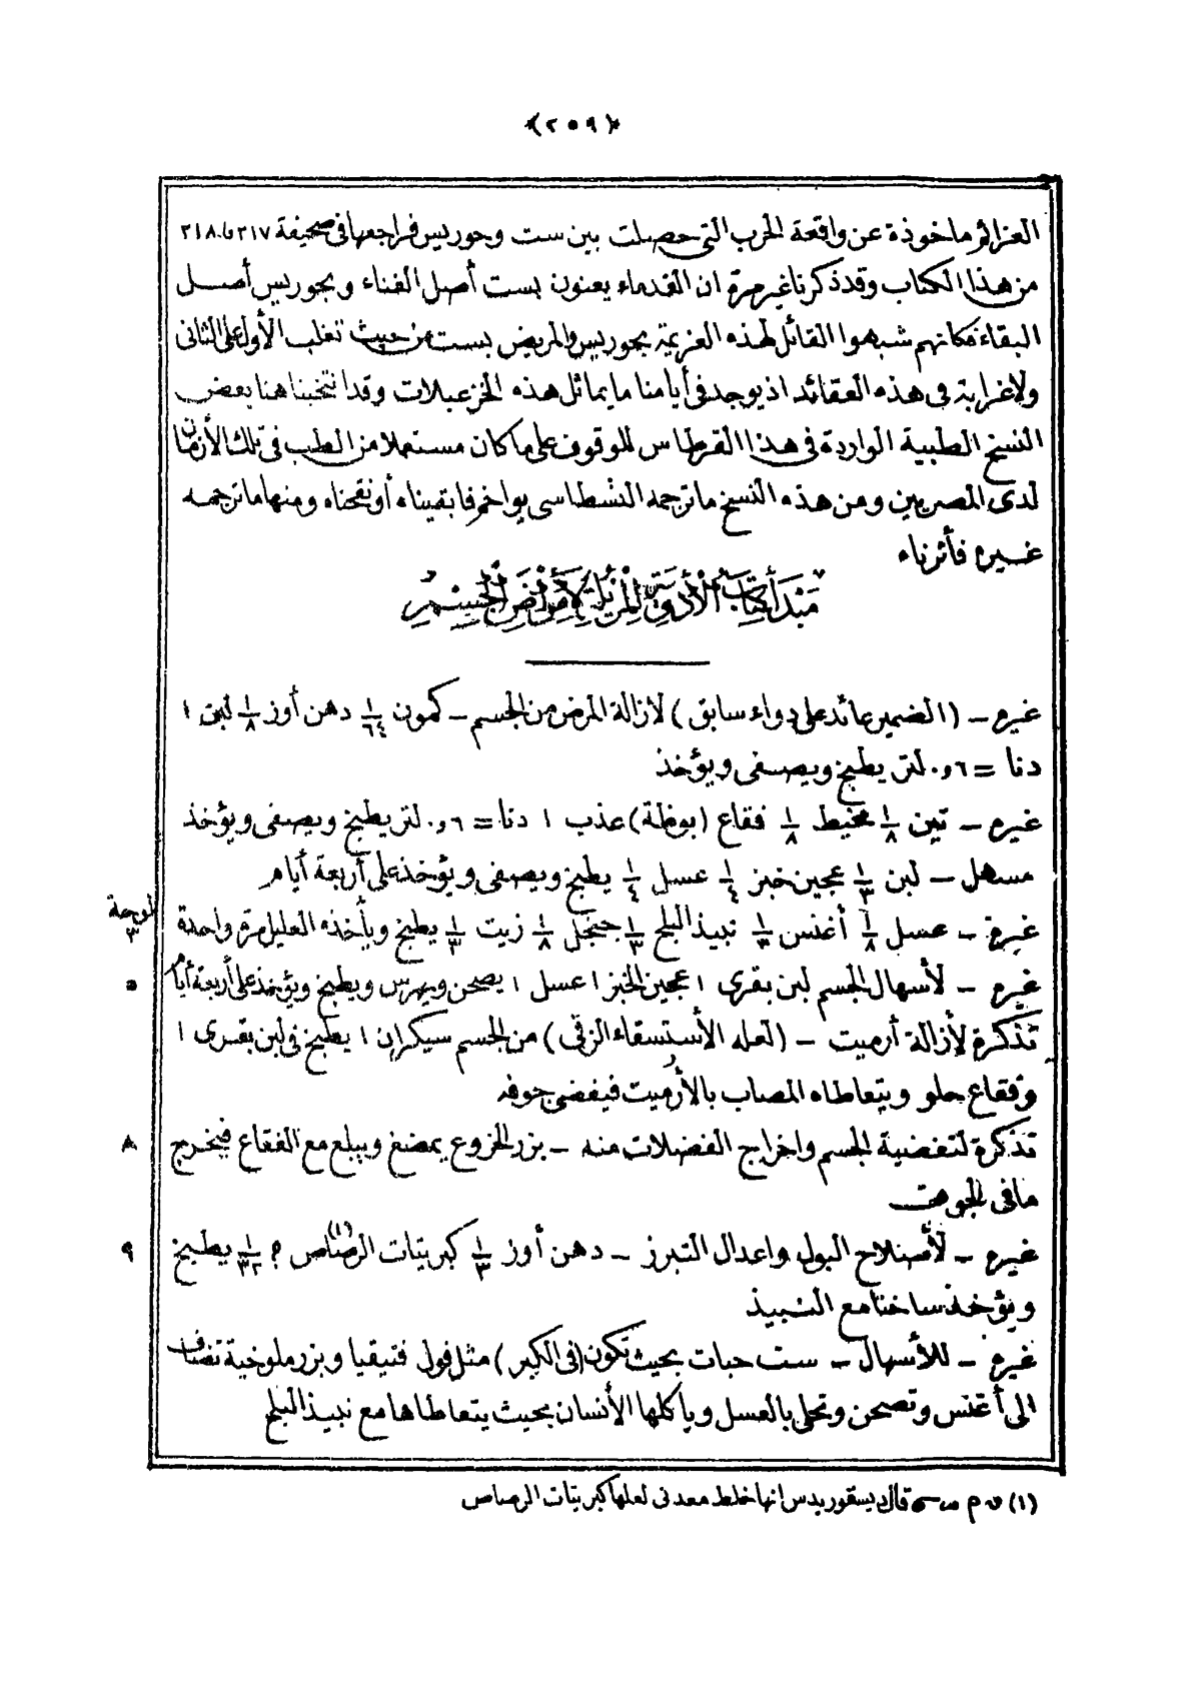 ﴿٢٥٩﴾
العزائم ماخوذة عن واقعة الحرب التى حصلت بين ست وحوريس فراجعها فى صحيفة ٢١٧ و ٢١٨
من هذا الكتاب وقد ذكرنا غير مرة ان القدماء يعنون بست أصل الفناء وبحوريس أصل
البقاء فكانهم شبهوا القائل لهذه العزيمة بحوريس والمريض بست من حيث تغلب الأول على الثانى
ولا غرابة فى هذه العقائد اذ يوجد فى أيامنا ما يماثل هذه الخزعبلات وقد انتخبنا هنا بعض
النسخ الطبية الواردة فى هذا القرطاس للوقوف على ما كان مستعملا من الطب فى تلك الأزمان
لدى المصريين ومن هذه النسخ ما ترجمه النطاسى يواخم فابقيناه أو نقحناه ومنها ما ترجمه
غيره فأثرناه
مَبْدَأ كِتَاب الْأَدْوِيَةِ الْمُزِيلَةِ لِأَمْرَاضِ الْجِسْمِ
غيره – (الضمير عائد على دواء سابق) لازالة المرض من الجسم – كمون ١/٦٤ دهن أوز ١/٨ لبن ١
دنا = ٦و٠ لتر يطبخ ويصفى ويؤخذ
غيره – تين ١/٨ مخيط ١/٨ فقاع (بوظة) عذب ١ دنا = ٦و٠ لتر يطبخ ويصفى ويؤخذ
مسهل – لبن ١/٣ عجين خبز ١/٤ عسل ١/٤ يطبخ ويصفى ويؤخذ على أربعة أيام
لوحة ٣
غيره – عسل ١/٨ أغنس ١/٣ نبيذ البلح ١/٣ حنجل ١/٨ زيت ١/٣ يطبخ ويأخذه العليل مرة واحدة
٥
غيره – لأسهال الجسم لبن بقرى ١ عجين الخبز ١ عسل ١ يصحن ويهرس ويطبخ ويؤخذ على أربعة أيام
تذكرة لأزالة أرميت – (لعله الأستسقاء الزقى) من الجسم سيكران ١ يطبخ فى لبن بقرى ١
وفقاع حلو ويتعاطاه المصاب بالأرميت فيفضى جوفه
٨
تذكرة لتفضية الجسم واخراج الفضلات منه – بزر الخروع يمضغ ويبلع مع الفقاع فيخرج
ما فى الجوف
٩
غيره – لأصلاح البول واعدال التبرز – دهن أوز ١/٣ كبريتات الرصاص (١) ؟ ١/٣٢ يطبخ
ويؤخذ ساخنا مع النبيذ
غيره – للأسهال – ست حبات بحيث تكون (فى الكبر) مثل فول فنيقيا وبزر ملوخية تضاف
الى أغنس وتصحن وتحلى بالعسل ويأكلها الأنسان بحيث يتعاطاها مع نبيذ البلح
(١) قال ديسقوريدس انها خلط معدنى لعلها كبريتات الرصاص